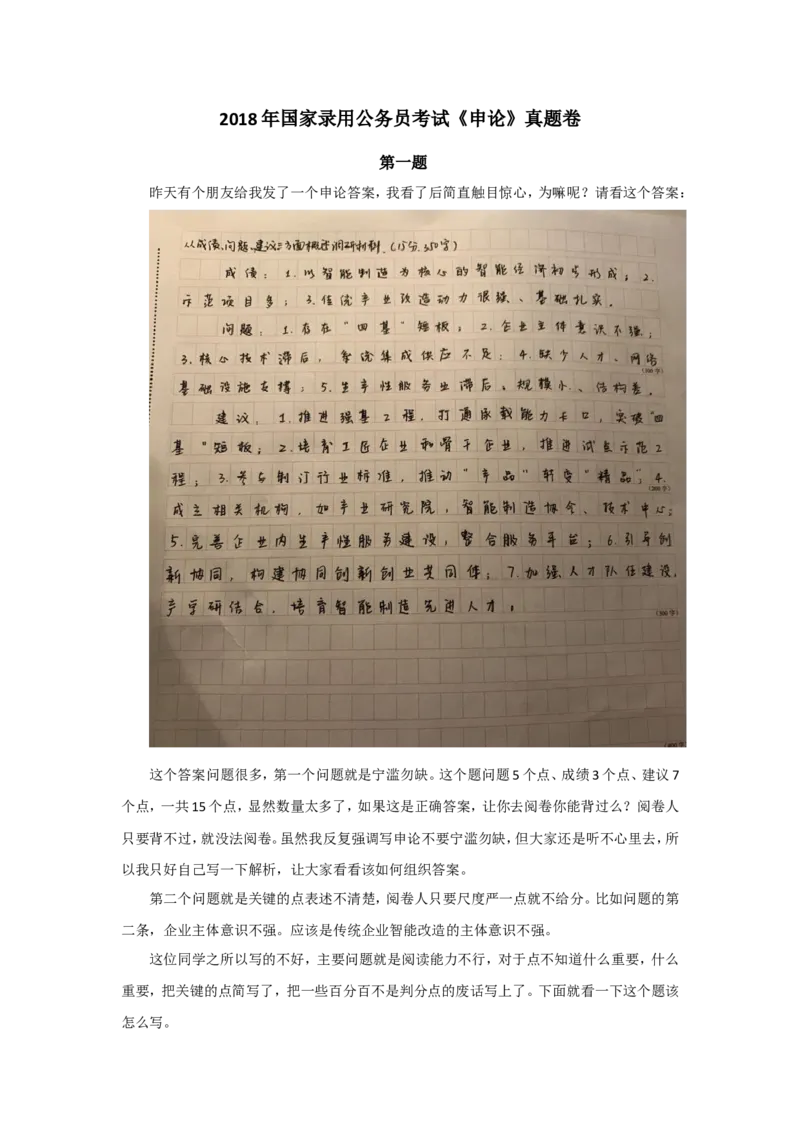 2018年国家录用公务员考试《申论》真题卷
第一题
昨天有个朋友给我发了一个申论答案，我看了后简直触目惊心，为嘛呢？请看这个答案：
从成绩、问题、建议三方面概述调研材料。（15分，350字）
成绩：1.以智能制造为核心的智能经济初步形成；2.
示范项目多；3.传统产业改造动力很强、基础扎实。
问题：1.存在“四基”短板；2.企业主体意识不强；
3.核心技术滞后，系统集成供应不足；4.缺少人才、网络
（100字）
基础设施支撑；5.生产性服务业滞后、规模小、结构差。
建议，1.推进强基工程，打通承载能力卡口，突破“四
基”短板；2.培育工匠企业和骨干企业，推进试点示范工
程；3.参与制订行业标准，推动“产品”转变“精品”；4.
（200字）
成立相关机构，如产业研究院，智能制造协会、技术中心；
5.完善企业内生产性服务建设，整合服务平台；6.引导创
新协同，构建协同创新创业共同体；7.加强人才队伍建设，
产学研结合，培育智能制造先进人才。
（300字）
（400字
这个答案问题很多，第一个问题就是宁滥勿缺。这个题问题5个点、成绩3个点、建议7
个点，一共15个点，显然数量太多了，如果这是正确答案，让你去阅卷你能背过么？阅卷人
只要背不过，就没法阅卷。虽然我反复强调写申论不要宁滥勿缺，但大家还是听不心里去，所
以我只好自己写一下解析，让大家看看该如何组织答案。
第二个问题就是关键的点表述不清楚，阅卷人只要尺度严一点就不给分。比如问题的第
二条，企业主体意识不强。应该是传统企业智能改造的主体意识不强。
这位同学之所以写的不好，主要问题就是阅读能力不行，对于点不知道什么重要，什么
重要，把关键的点简写了，把一些百分百不是判分点的废话写上了。下面就看一下这个题该
怎么写。